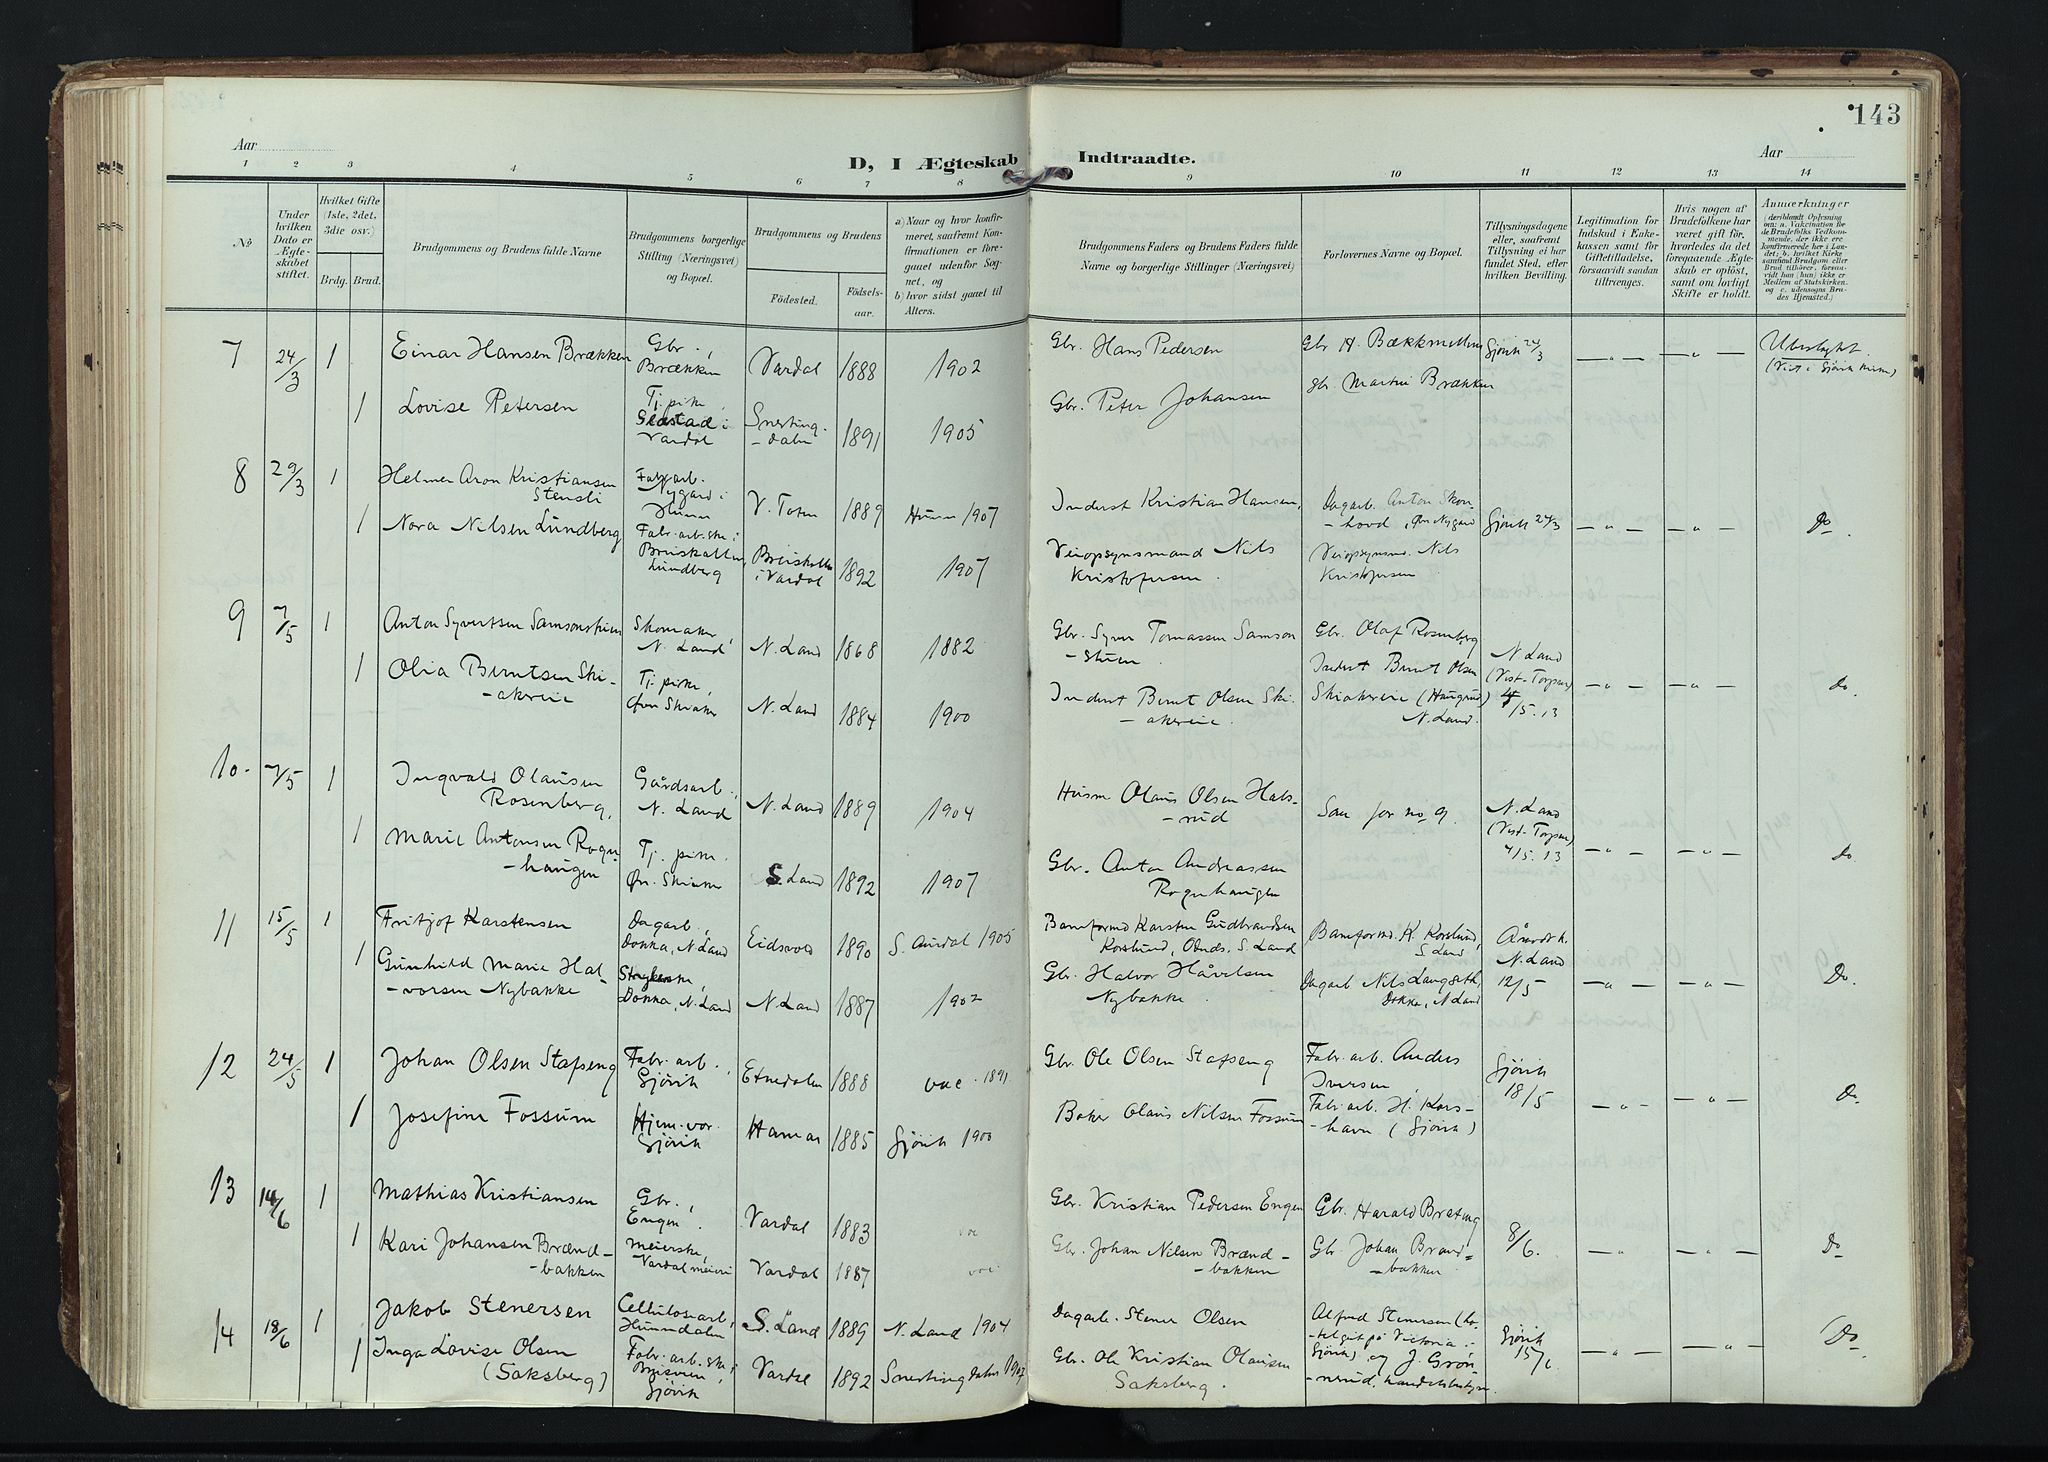 143
Aar
D, I Ægteskab Indtraadte.
Aar
1 2 3 4 5 6 7 8 9 10 11 12 13 14
№
Under hvilken Dato er Ægteskabet stiftet.
Hvilket Gifte (1ste, 2det, 3die osv.)
Brdg. Brud.
Brudgommens og Brudens fulde Navne
Brudgommens borgerlige Stilling (Næringsvei) og Bopæl.
Brudgommens og Brudens
Fødested. Fødselsaar.
a) Naar og hvor konfirmeret, saafremt Konfirmationen er foregaaet udenfor Sognet, og
b) hvor sidst gaaet til Alters.
Brudgommens Faders og Brudens Faders fulde Navne og borgerlige Stillinger (Næringsvei)
Forlovernes Navne og Bopæl.
Tillysningsdagene eller, saafremt Tillysning ei har fundet Sted, efter hvilken Bevilling.
Legitimation for Indskud i Enkekassen samt for Giftetilladelse, forsaavidt saadan tiltrænges.
Hvis nogen af Brudefolkene har været gift før, hvorledes da det foregaaende Ægteskab er opløst, samt om lovligt Skifte er holdt.
Anmerkninger
7 24/3 1 Einar Hansen Brækken Gbr., Brækken Vardal 1888 1902 Gbr. Hans Pedersen Gbr H. Bækkmellem Gjøvik 24/3 — " — — " — Ubeslægt. (Viet i Gjøvik Kirke)
1 Lovise Petersen Tj. pike, Gladstad i Vardal Snertingdalen 1891 1905 Gbr. Peter Johansen Gbr. Martin Brækken
8 29/3 1 Helmer Aron Kristiansen Stensli Fabrarb. Nygard i Hunn V. Toten 1889 Hunn 1907 Inderst Kristian Hansen, Dagarb. Anton Skonhovd, Øv. Nygard Gjøvik 24/3 — " — — " — Do.
1 Nora Nilsen Lundberg Fabr. arb.ske i Breiskallen, Lundberg Breiskallen i Vardal 1892 1907 Veiopsynsmand Nils Kristofersen. Veiopsynsm. Nils Kristofersen
9 7/5 1 Anton Syvertsen Samsonstuen Skomaker, N. Land N. Land 1868 1882 Gbr. Syver Tomassen Samsonstuen. Gbr. Olaf Rosenberg N. Land (Vest-Torpen) 4/5. 13 — " — — " — Do.
1 Olia Berntsen Skiakereie Tj. pike, Øvr Skiaker N. Land 1884 1900 Inderst Bernt Olsen Skiakereie. Inderst Bernt Olsen Skiakereie (Haugrud) N. Land.
10. 7/5 1 Ingvald Olausen Rosenberg, Gårdsarb., N. Land N. Land 1889 1904 Husm Olaus Olsen Halsrud Som for no. 9. N. Land (Vest-Torpen) 4/5. 13 — " — — " — Do
1 Marie Antonsen Rognhaugen Tj. pike. Øv. Skiaker S. Land 1892 1907 Gbr. Anton Andreassen Rognhaugen
11 15/5 1 Fritjof Karstensen Dagarb., Dokka, N. Land Eidsvold 1890 S. Aurdal 1905 Baneformd Karsten Gudbrandsen Korslund, Odnes, S. Land Baneformd. K. Korslund, S. Land Åmodt k. N. Land 12/5 — " — — " — Do.
1 Gunhild Marie Halvorsen Nybakke Strykerske, Dokka, N. Land N. Land 1887 1902 Gbr. Halvor Håvelsen Nybakke. Dagarb Nils Langseth, Dokka, N Land
12 24/5 1 Johan Olsen Stafseng Fabr. arb., Gjøvik Etnedalen 1888 vac. 1891. Gbr. Ole Olsen Stafseng Fabr. arb. Anders Iversen, Gjøvik 18/5 — " — — " — Do.
1 Josefine Fossum Hjem. vor. Gjøvik Hamar 1885 Gjøvik 1900 Baker Olaus Nilsen Fossum Fabr. arb. H. Korshavn (Gjøvik)
13 14/6 1 Mathias Kristiansen Gbr., Engen. Vardal 1883 Gbr. Kristian Pedersen Engen Gbr. Harald Breteng 8/6. — " — — " — Do
1 Kari Johansen Brændbakken Meierske, Vardal meieri Vardal 1887 Gbr. Johan Nilsen Brændbakken Gbr. Johan Brændbakken
14 18/6 1 Jakob Stenersen Cellulosearb., Hunndalen S. Land 1889 N. Land 1904 Dagarb. Stener Olsen Alfred Stenersen Gjøvik 15/6 — " — — " — Do.
1 Inga Lovise Olsen (Saksberg) Fabr. arb.ske i Gjøvik Vardal 1892 Snertingdalen 1907 Gbr. Ole Kristian Olausen Saksberg. og J. Grønnerud,